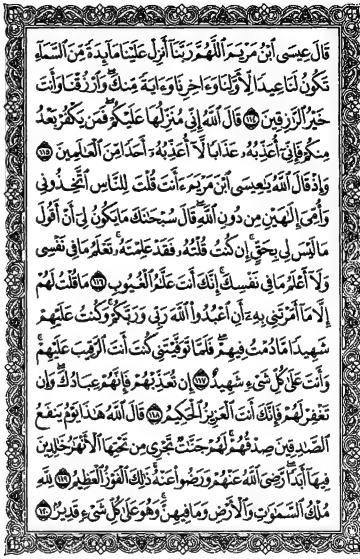 قَالَ عِيسَى ٱبْنُ مَرْيَمَ ٱللَّهُمَّ رَبَّنَآ أَنزِلْ عَلَيْنَا مَآئِدَةً مِّنَ ٱلسَّمَآءِ
تَكُونُ لَنَا عِيدًا لِّأَوَّلِنَا وَءَاخِرِنَا وَءَايَةً مِّنكَ ۖ وَٱرْزُقْنَا وَأَنتَ
خَيْرُ ٱلرَّٰزِقِينَ ١١٤ قَالَ ٱللَّهُ إِنِّى مُنَزِّلُهَا عَلَيْكُمْ ۖ فَمَن يَكْفُرْ بَعْدُ
مِنكُمْ فَإِنِّىٓ أُعَذِّبُهُۥ عَذَابًا لَّآ أُعَذِّبُهُۥٓ أَحَدًا مِّنَ ٱلْعَٰلَمِينَ ١١٥
وَإِذْ قَالَ ٱللَّهُ يَٰعِيسَى ٱبْنَ مَرْيَمَ ءَأَنتَ قُلْتَ لِلنَّاسِ ٱتَّخِذُونِى
وَأُمِّىَ إِلَٰهَيْنِ مِن دُونِ ٱللَّهِ ۖ قَالَ سُبْحَٰنَكَ مَا يَكُونُ لِىٓ أَنْ أَقُولَ
مَا لَيْسَ لِى بِحَقٍّ ۚ إِن كُنتُ قُلْتُهُۥ فَقَدْ عَلِمْتَهُۥ ۚ تَعْلَمُ مَا فِى نَفْسِى
وَلَآ أَعْلَمُ مَا فِى نَفْسِكَ ۚ إِنَّكَ أَنتَ عَلَّٰمُ ٱلْغُيُوبِ ١١٦ مَا قُلْتُ لَهُمْ
إِلَّا مَآ أَمَرْتَنِى بِهِۦٓ أَنِ ٱعْبُدُوا۟ ٱللَّهَ رَبِّى وَرَبَّكُمْ ۚ وَكُنتُ عَلَيْهِمْ
شَهِيدًا مَّا دُمْتُ فِيهِمْ ۖ فَلَمَّا تَوَفَّيْتَنِى كُنتَ أَنتَ ٱلرَّقِيبَ عَلَيْهِمْ ۚ
وَأَنتَ عَلَىٰ كُلِّ شَىْءٍ شَهِيدٌ ١١٧ إِن تُعَذِّبْهُمْ فَإِنَّهُمْ عِبَادُكَ ۖ وَإِن
تَغْفِرْ لَهُمْ فَإِنَّكَ أَنتَ ٱلْعَزِيزُ ٱلْحَكِيمُ ١١٨ قَالَ ٱللَّهُ هَٰذَا يَوْمُ يَنفَعُ
ٱلصَّٰدِقِينَ صِدْقُهُمْ ۚ لَهُمْ جَنَّٰتٌ تَجْرِى مِن تَحْتِهَا ٱلْأَنْهَٰرُ خَٰلِدِينَ
فِيهَآ أَبَدًا ۚ رَّضِىَ ٱللَّهُ عَنْهُمْ وَرَضُوا۟ عَنْهُ ۚ ذَٰلِكَ ٱلْفَوْزُ ٱلْعَظِيمُ ١١٩ لِلَّهِ
مُلْكُ ٱلسَّمَٰوَٰتِ وَٱلْأَرْضِ وَمَا فِيهِنَّ ۚ وَهُوَ عَلَىٰ كُلِّ شَىْءٍ قَدِيرٌۢ ١٢٠